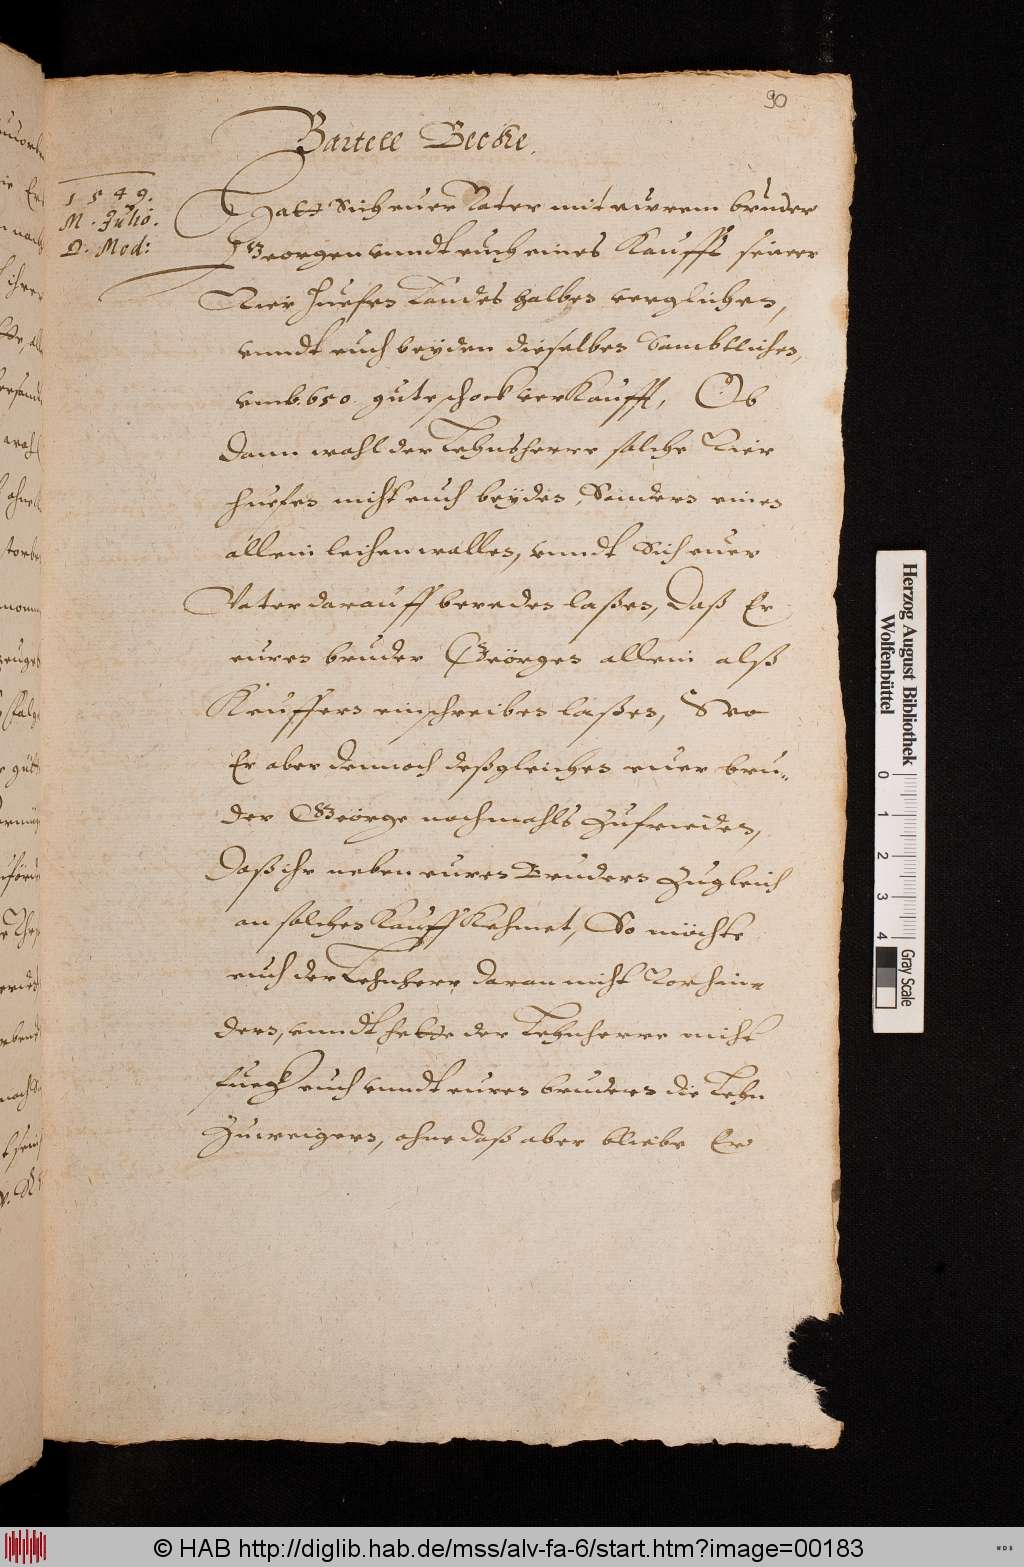 90
Bartell Becke.
1549.
M. Julio.
D. Mod:
Hatt Sich euer Vater mit eurem bruder
Georgen vnndt euch eines Kauffs seiner
Vier huefen Landes halben verglichen,
vnndt euch beyden dieselben Sambtlichen,
vmb. 650. gute schock verkaufft, Ob
dann wohl der Lehnsherre solche Vier
huefen nicht euch beyden, Sondern einen
allein leihen wollen, vnndt Sich euer
Vater darauff bereden laßen, Daß Er
euren bruder Geörgen allein alß
Keuffern einschreiben laßen, So
Er aber dennoch deßgleichen euer bru-
der Geörge nochmahls zufrieden,
Daß ihr neben euren Bruders zugleich
an solchen Kauff Kehmet, So möchte
euch der Lehnherr daran nicht Vorhin-
dern, vnndt hette der Lehnherre nicht
fueg euch vnndt euren brudern die Lehn
Zuweigern, ohne daß aber bliebe Er
Herzog August Bibliothek
Wolfenbüttel
0 1 2 3 4
Gray Scale
© HAB http://diglib.hab.de/mss/alv-fa-6/start.htm?image=00183